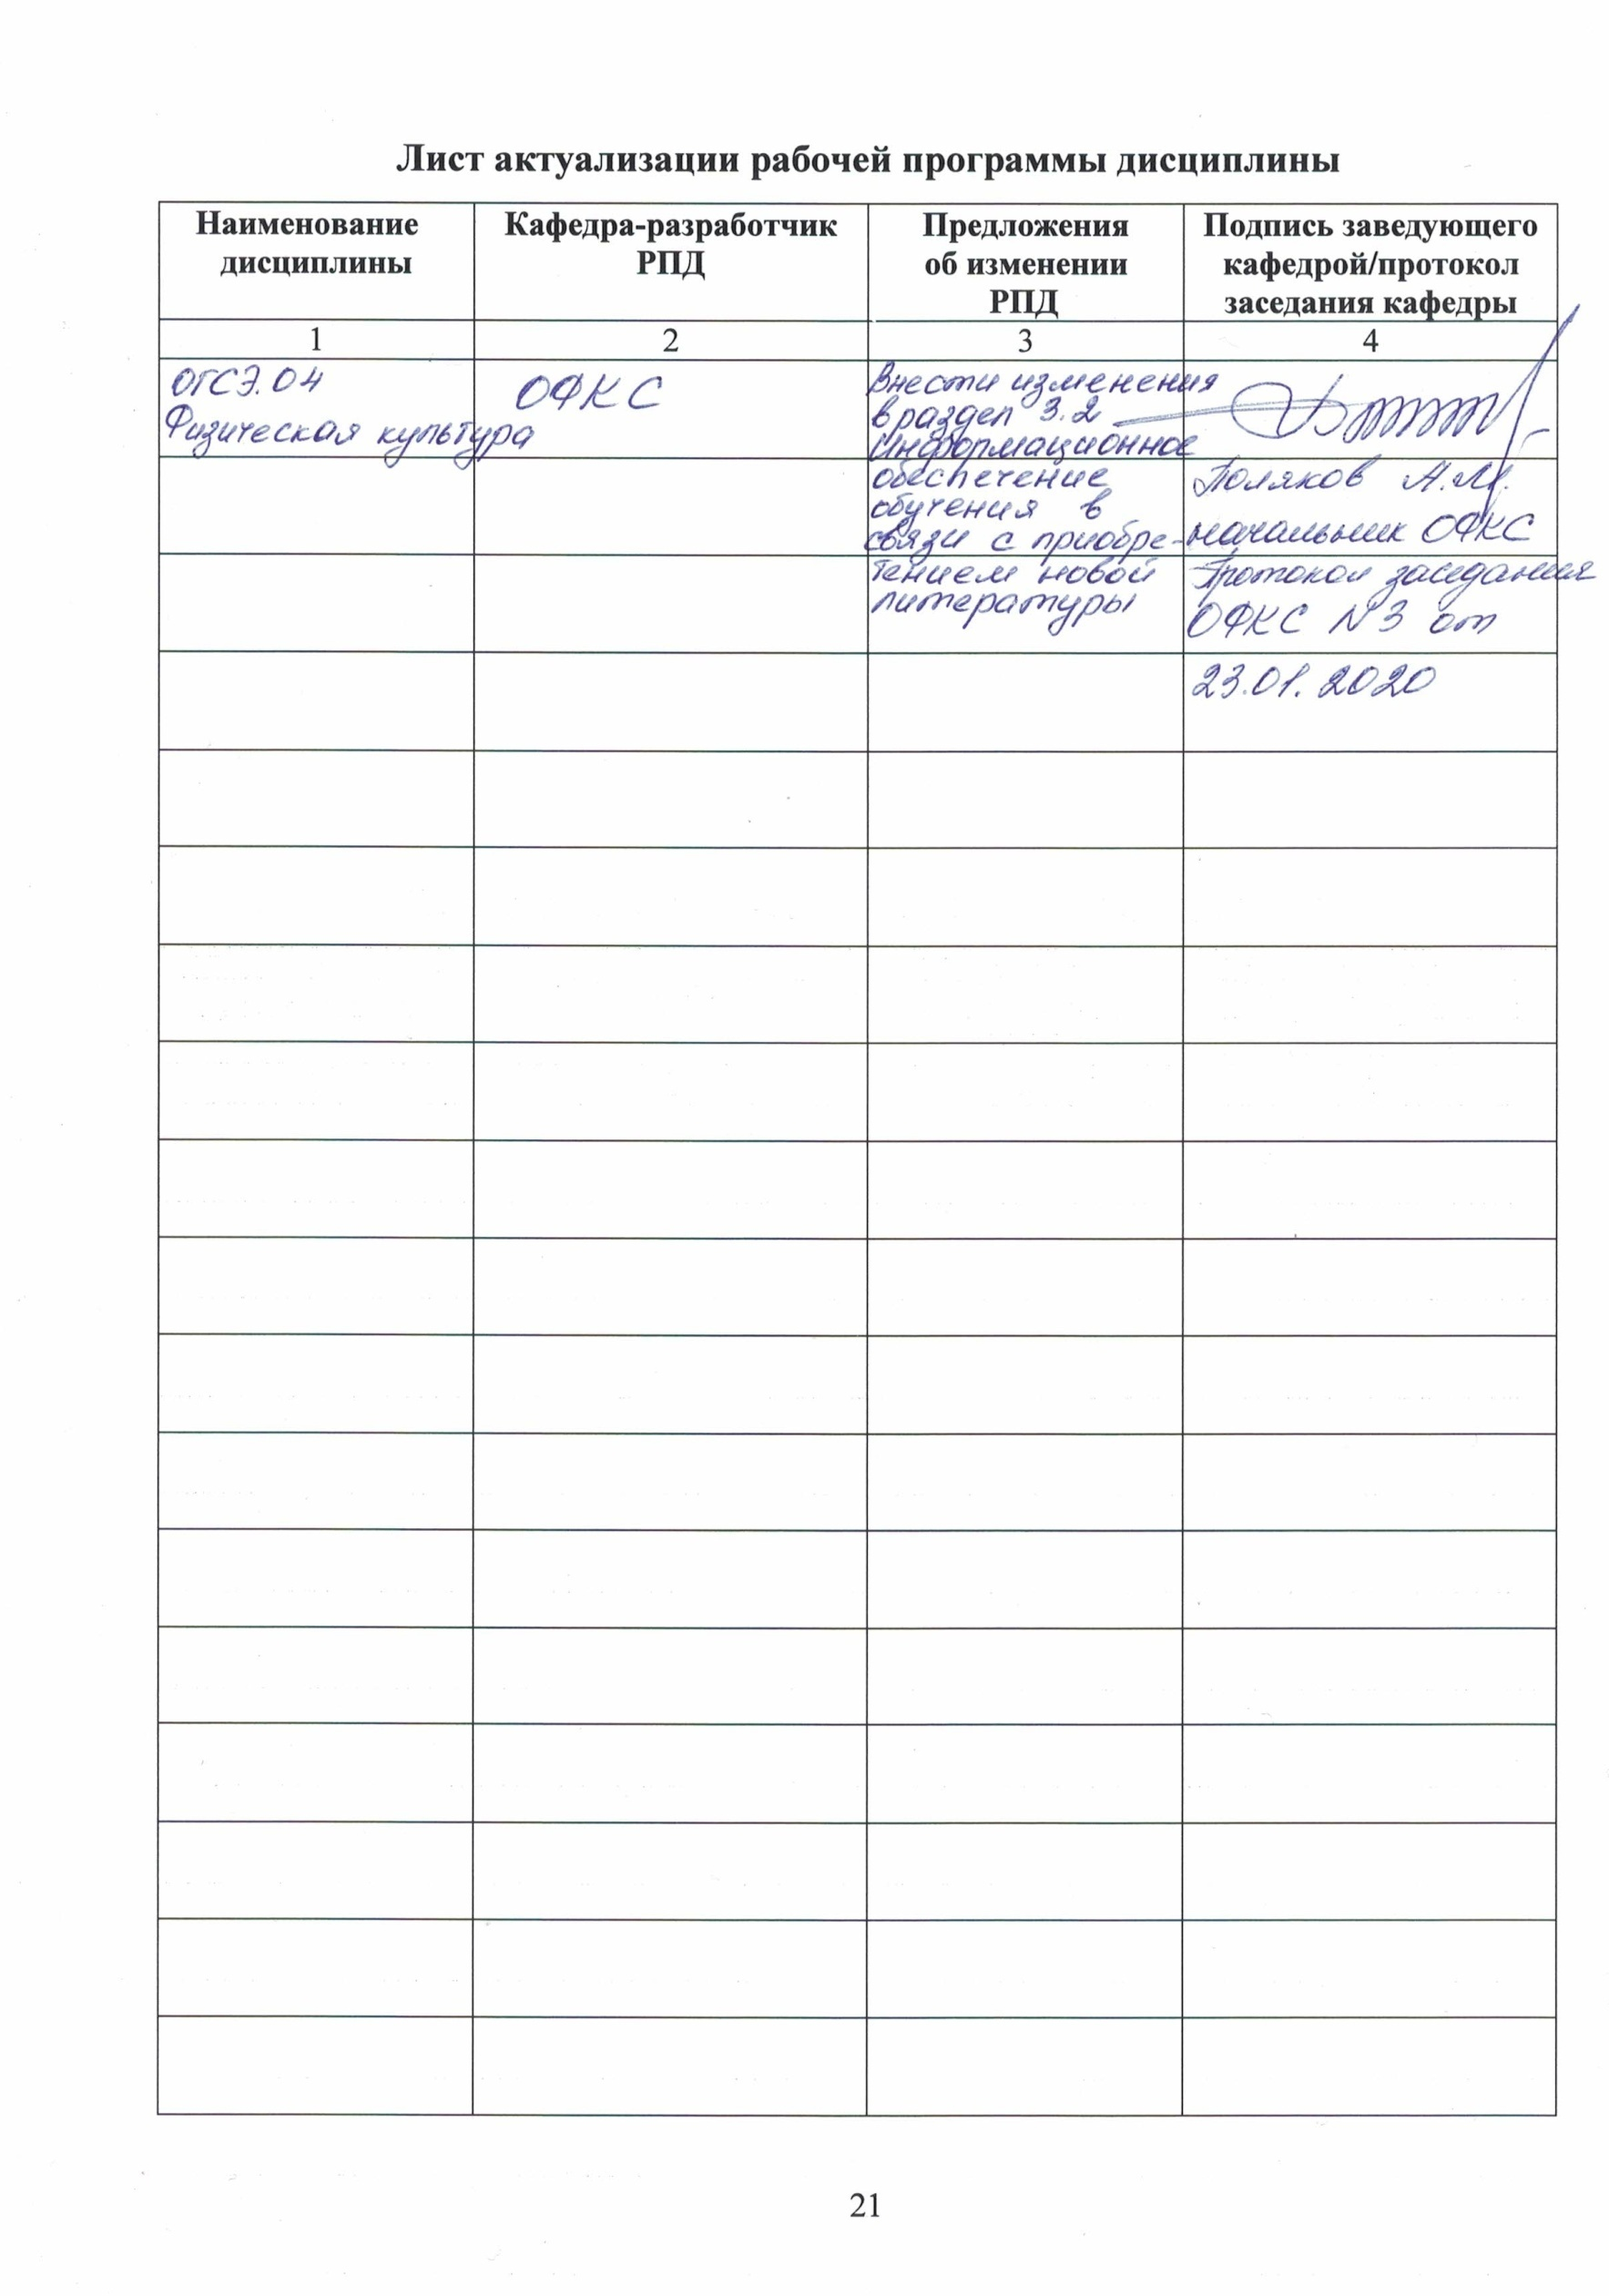 Лист актуализации рабочей программы дисциплины
Наименование
дисциплины
Кафедра-разработчик
РПД
Предложения
об изменении
РПД
Подпись заведующего
кафедрой/протокол
заседания кафедры
1
2
3
4
ОГСЭ.04
Физическая культура
ОФКС
Внести изменения
в раздел 3.2
Информационное
обеспечение
обучения в
связи с приобре-
тением новой
литературы
Поляков А.М.
начальник ОФКС
Протокол заседания
ОФКС №3 от
23.01.2020
21